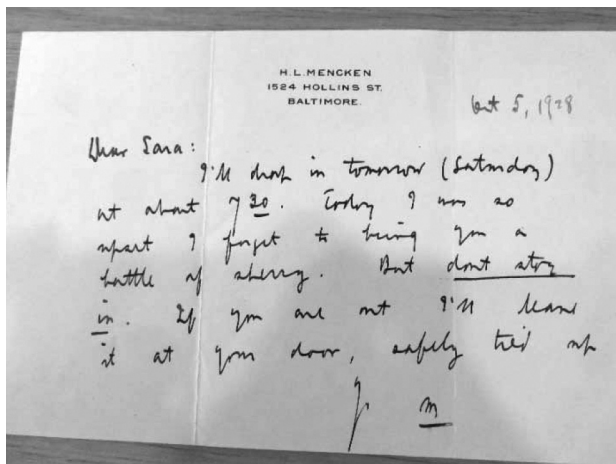 H. L. MENCKEN
1524 HOLLINS ST.
BALTIMORE.
Oct 5, 1928
Dear Sara:
I'll drop in tomorrow (Saturday)
at about 7 30. Today I was so
upset I forgot to bring you a
bottle of sherry. But dont stay
in. If you are out I'll leave
it at your door, safely tied up
M